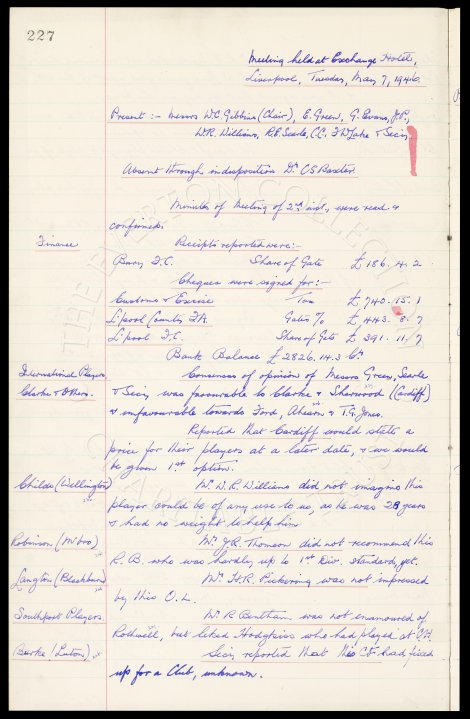 227
Meeting held at Exchange Hotel,
Liverpool, Tuesday, May 7, 1946.
Present :- Messrs W.C. Gibbins (Chair), E. Green, G. Evans, J.P.,
W.R. Williams, R.E. Searle, & Secy.
Absent through indisposition Dr. C.S. Baxter.
Minutes of Meeting of 2nd inst., were read &
confirmed.
Finance
Receipts reported were:-
Bury F.C. Share of Gate £ 186. 4. 2
Cheques were signed for:-
Customs & Excise Tax £ 740. 15. 1
L'pool County F.A. Gates % £ 443. 8. 7
L'pool F.C. Share of Gate £ 391. 11. 7
Bank Balance £ 2826. 14. 3
International Players
Clarke & Others.
Consensus of opinion of Messrs Green, Searle
& Secy, was favourable to Clarke & Sherwood (Cardiff)
& unfavourable towards Ford, & T.G. Jones.
Reported that Cardiff would state a
price for their players at a later date, & we would
be given 1st option.
Childs (Wellington)
Mr. W.R. Williams did not imagine this
player would be of any use to us, as he was 28 years
& had no weight to help him
Robinson
Mr. J.R. Thomson did not recommend this
R.B. who was hardly up to 1st Div. standard, yet.
Langton (Blackburn)
Mr. H.R. Pickering was not impressed
by this O.L.
Southport Players.
Mr. R. Bentham was not enamoured of
Rothwell, but liked Hodgkiss who had played at
Burke (Luton)
Secy reported that this had fixed
up for a Club, unknown.
THE EVERTON COLLECTION